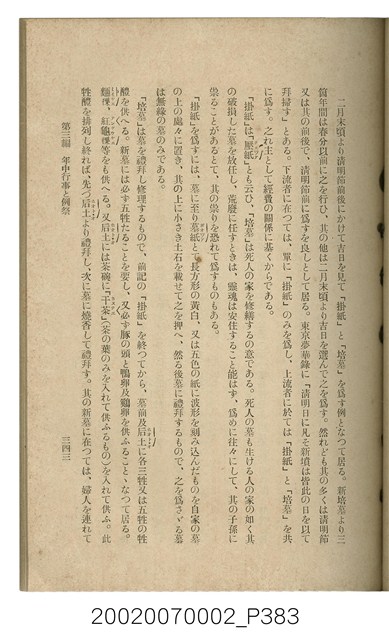 二月末頃より清明節前後にかけて吉日を見て「掛紙」と「培墓」を爲す例となつて居る。新培墓より三
箇年間は春分以前に之を行ひ、其の他は二月末頃より吉日を選んで之を爲す。然れども其の多くは清明節
又は其の前後で、清明節前に爲すを良しとして居る。東京夢華錄に「清明日に凡そ新墳は皆此の日を以て
拜掃す」とある。下流者に在つては、單に「掛紙」のみを爲し、上流者に於ては「掛紙」と「培墓」を共
に爲す。之れ主として經費の關係に基くからである。
「掛紙」は「壓紙」とも云ひ、「培墓」は死人の家を修繕するの意である。死人の墓も生ける人の家の如く其
の破損した墓を放任し、荒廢に任すときは、靈魂は安住すること能はず、爲めに往々にして、其の子孫に
祟ることがあるとて、其の祟りを恐れて爲すものもある。
「掛紙」を爲すには、墓に至り墓紙とて長方形の黃白、又は五色の紙に波形を刻み込んだものを自家の墓
の上の處々に置き、其の上に小さき土石を載せて之を押へ、然る後墓に禮拜するもので、之を爲さゞる墓
は無緣の墓のみである。
「培墓」は墓を禮拜し修理するもので、前記の「掛紙」を終つてから、墓前及后土に各三牲又は五牲の牲
醴を供へる。新墓には必ず五牲たることを要し、又必ず豚の頭と鴨卵及鷄卵を供ふることゝなつて居る。
麵粿、紅龜粿等をも供へる。又后土には茶碗に「干茶」(茶の葉のみを入れて供ふるもの)を入れて供ふ。此
牲醴を排列し終れば、先づ后土より禮拜し、次に墓に燒香して禮拜す。其の新墓に在つては、婦人を連れて
第三編　年中行事と例祭
三四三
20020070002_P383